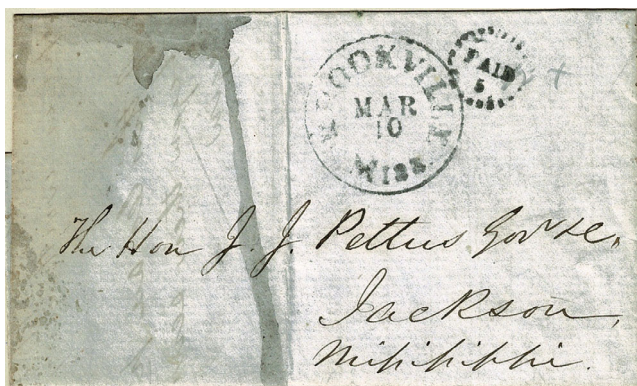 BROOKVILLE
MAR
10
Miss.
PAID
5
The Hon J. J. Pettus Govr &c,
Jackson,
Mississippi.